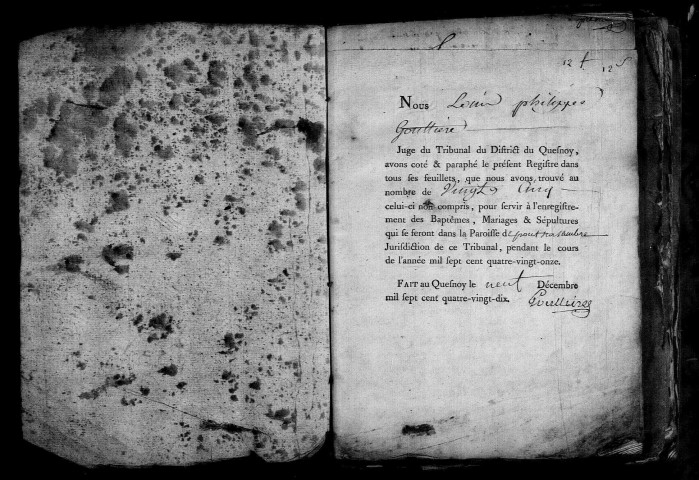 12 f 12 s
Nous Louis philippes
Gouttiere
Juge du Tribunal du Diſtrict du Queſnoy,
avons coté & paraphé le préſent Regiſtre dans
tous ſes feuillets, que nous avons trouvé au
nombre de Vingts Cinq
celui-ci non compris, pour ſervir à l'enregiſtre-
ment des Baptêmes, Mariages & Sépultures
qui ſe feront dans la Paroiſſe de pont sur sambre
Jurisdiction de ce Tribunal, pendant le cours
de l'année mil ſept cent quatre-vingt-onze.
Fait au Queſnoy le neuf Décembre
mil ſept cent quatre-vingt-dix.